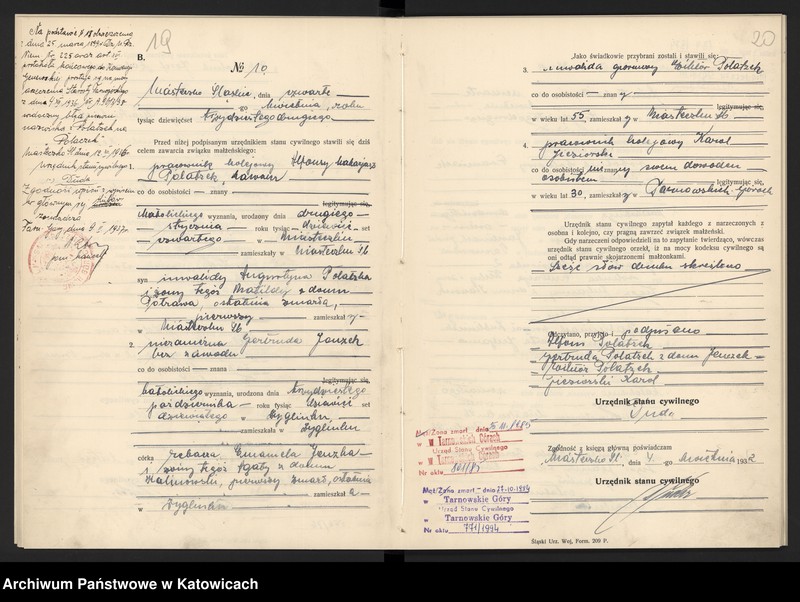 19
Na podstawie § 18 obwieszczenia
z dnia 25 marca
protokołu końcowego do Konwencji
Genewskiej prostuje się na mocy
orzeczenia Starosty
nazwiska: Polatzek na
"Polaczek"
Urzędnik stanu cywilnego
Zgodność z wpisem
w głównym
B.
№ 10.
Miasteczko Śląskie, dnia czwarte-
go kwietnia, roku
tysiąc dziewięćset trzydziestegodrugiego
Przed niżej podpisanym urzędnikiem stanu cywilnego stawili się dziś
celem zawarcia związku małżeńskiego:
1. pracownik kolejowy Alfons
Polatzek, kawaler
co do osobistości — znany
legitymując się
katolickiego wyznania, urodzony dnia drugiego
stycznia — roku tysiąc dziewięć- set
czwartego — w — Miasteczku
zamieszkały w Miasteczku Śl.
syn inwalidy Augustyna Polatzka
i żony tegoż Matyldy z domu
Potrawa, ostatnia zmarła,
pierwszy — zamieszkał y-
w Miasteczku Śl.
2. niezamężna Gertruda Jonczek
bez zawodu
co do osobistości — znana
legitymując się
katolickiego wyznania, urodzona dnia trzydziestego
października — roku tysiąc dziewięć set
dziewiątego w Żyglinku,
zamieszkała w Żyglinku
córka rębacza Emanuela Jonczka
i żony tegoż Agaty z domu
Kalinowski, pierwszy zmarł, ostatnia
zamieszkał a
w Żyglinku
20
Jako świadkowie przybrani zostali i stawili się:
3. inwalida górniczy Wiktor Polatzek
co do osobistości — znany
legitymując się
w wieku lat 55, zamieszkały w Miasteczku Śl.
4. pracownik kolejowy Karol
Jeziorski
co do osobistości swem dowodem
osobistym
legitymując się,
w wieku lat 30, zamieszkały w Tarnowskich-Górach
Urzędnik stanu cywilnego zapytał każdego z narzeczonych z
osobna i kolejno, czy pragną zawrzeć związek małżeński.
Gdy narzeczeni odpowiedzieli na to zapytanie twierdząco, wówczas
urzędnik stanu cywilnego orzekł, iż na mocy kodeksu cywilnego są
oni odtąd prawnie skojarzonemi małżonkami.
Sześć słów druku skreślono
Odczytano, przyjęto i podpisano
Alfons Polatzek
Gertruda Polatzek z domu Jonczek
Wiktor Polatzek
Jeziorski Karol
Urzędnik stanu cywilnego
Duda
Zgodność z księgą główną poświadczam
Miasteczko Śl., dnia 4. -go kwietnia 1932
Urzędnik stanu cywilnego
Duda
Mąż/Żona zmarł. dnia
w Tarnowskich Górach
Urząd Stanu Cywilnego
w Tarnowskich Górach
Nr aktu
Mąż/Żona zmarł dnia 27-10-1994
w Tarnowskie Góry
Urząd Stanu Cywilnego
w Tarnowskie Góry
Nr aktu 771/1994
Śląski Urz. Wej. Form. 209 P.
Archiwum Państwowe w Katowicach